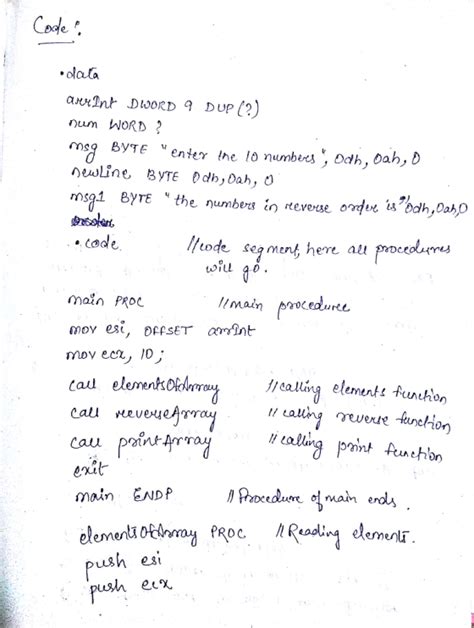 Code:
.data
arrInt DWORD 9 DUP(?)
num WORD ?
msg BYTE "enter the 10 numbers", 0dh, 0ah, 0
newline BYTE 0dh, 0ah, 0
msg1 BYTE "the numbers in reverse order is" 0dh, 0ah, 0
.code //code segment, here all procedures
will go.
main PROC //main procedure
mov esi, OFFSET arrInt
mov ecx, 10;
call elementsOfArray //calling elements function
call reverseArray //calling reverse function
call printArray //calling print function
exit
main ENDP //Procedure of main ends.
elementsOfArray PROC //Reading elements.
push esi
push ecx